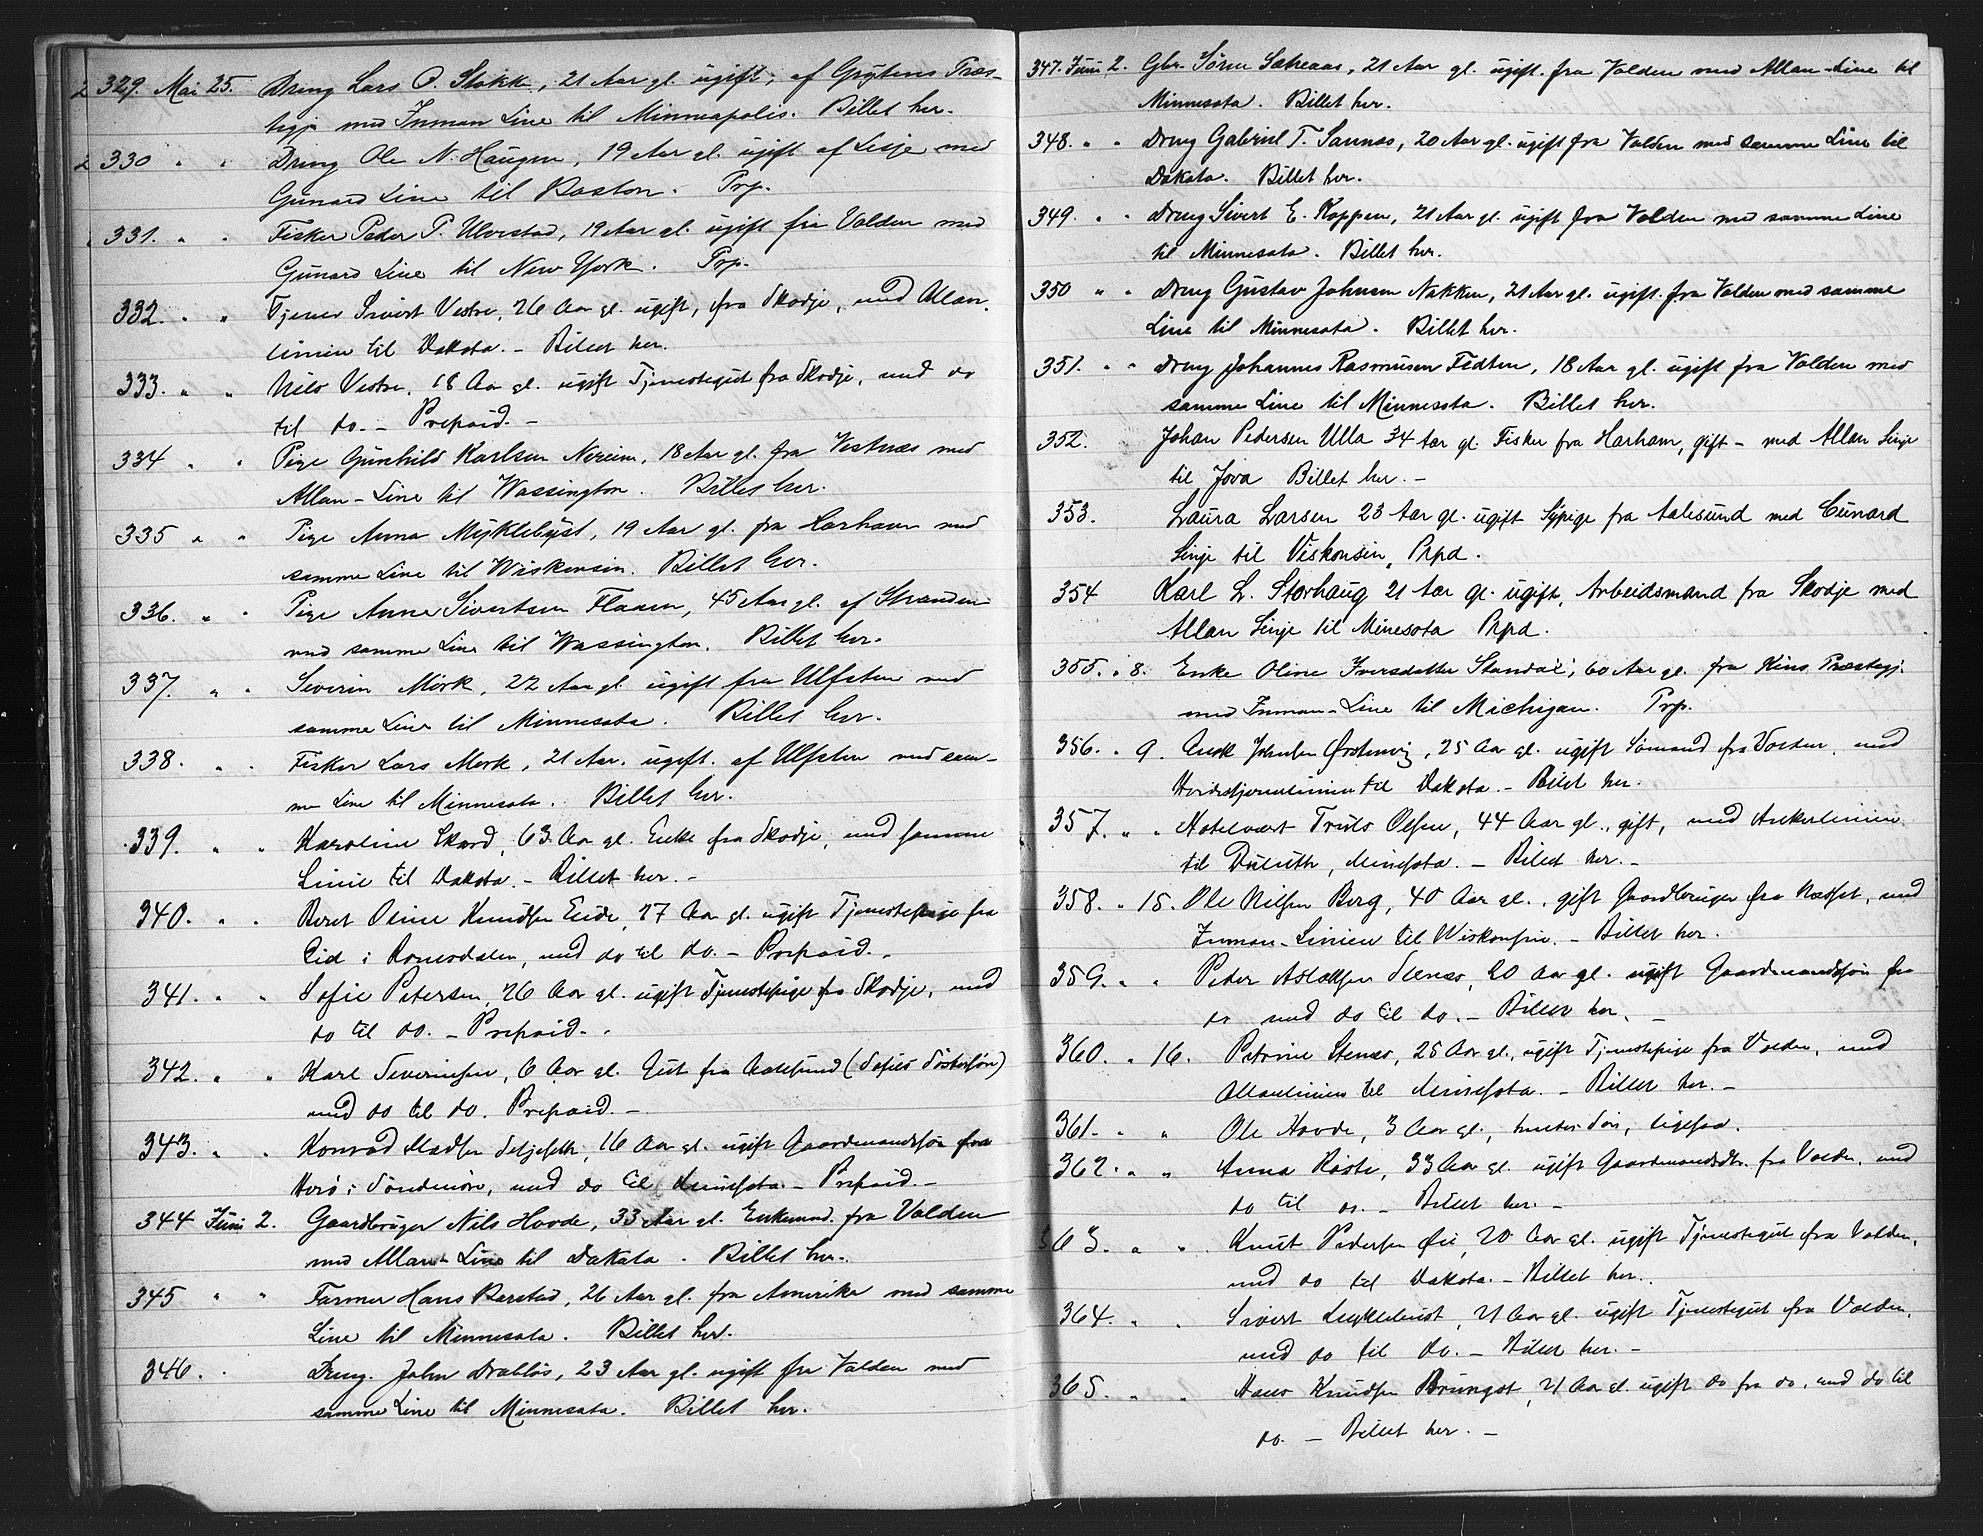 329. Mai 25. Dreng Lars P. Stokke, 21 Aar gl. ugift, af Grytens Præs-
tegj. med Inman Line til Minneapolis. Billet her.
330 " " Dreng Ole N. Haugen, 19 Aar gl. ugift af Lesje med
Gunard Line til Boston. Prp.
331. " " Fisker Peder P. Ulvestad, 19 Aar gl. ugift fra Volden med
Gunard Line til New York. Prp.
332. " " Tjener Sivert Vestre, 26 Aar gl. ugift, fra Skodje, med Allan-
linien til Dakota. - Billet her.
333. " " Nils Vestre, 18 Aar gl. ugift Tjenestegut fra Skodje, med do
til do. - Prepaid. -
334 " " Pige Gunhild Karlsen Nereim, 18 Aar gl. fra Vestnæs med
Allan-Line til Wassington. Billet her.
335 " " Pige Anna Myklebyst, 19 Aar gl. fra Harham med
samme Line til Wiskonsin. Billet her.
336. " " Pige Anne Sivertsen Flaaen, 45 Aar gl. af Stranden
med samme Line til Wassington. Billet her.
337. " " Severin Mörk, 22 Aar gl ugift fra Ulfsten med
samme Line til Minnesota. Billet her.
338. " " Fisker Lars Mork, 21 Aar. ugift. af Ulfsten med sam-
me Line til Minnesota. Billet her.
339. " " Karoline Skard, 63 Aar gl. Enke fra Skodje, med samme
Linie til Dakota. - Billet her. -
340. " " Beret Oline Knudsen Eide, 27 Aar gl. ugift Tjenestepige fra
Eid i Romsdalen, med do til do. - Prepaid. -
341. " " Sofie Petersen, 26 Aar gl. ugift Tjenestepige fra Skodje, med
do til do. - Prepaid. -
342. " " Karl Severinsen, 6 Aar gl. Gut fra Aalesund (Sofies Søstersøn)
med do til do. Prepaid. -
343. " " Konrad Madsen, 16 Aar gl. ugift Gaardmandssøn fra
Herö i Söndmöre, med do til Minnesota - Prepaid. -
344 Juni 2. Gaardbruger Nils Hovde, 33 Aar gl. Enkemand. fra Volden
med Allan-Line til Dakota. Billet her.
345 " " Farmer Hans Barstad, 26 Aar gl. fra Amerika med samme
Line til Minnesota. Billet her.
346. " Dreng. John Drabløs, 23 Aar gl. ugift fra Volden med
samme Line til Minnesota. Billet her.
347. Juni 2. Gbr. Sørine Sætreaas, 21 Aar gl. ugift. fra Volden med Allan-Line til
Minnesota. Billet her.
348. " " Dreng Gabriel T. Sannæs, 20 Aar gl. ugift fra Volden med samme Line til
Dakota. Billet her.
349. " " Dreng Sivert E. Koppen, 21 Aar gl. ugift fra Volden med samme Line
til Minnesota. Billet her.
350 " " Dreng Gustav Johnsen Nakken, 21 Aar gl. ugift. fra Volden med samme
Line til Minnesota. Billet her.
351. " " Dreng Johannes Rasmusen Fedten, 18 Aar gl. ugift fra Volden med
samme Line til Minnesota. Billet her.
352. Johan Pedersen Ulla 34 Aar gl. Fisker fra Harham, gift - med Allan Linje
til Jova Billet her. -
353. Laura Larsen 23 Aar gl. ugift Sypige fra Aalesund med Cunard
Linje til Viskonsin, Prpd.
354 Karl L. Storhaug 21 Aar gl. ugift, Arbeidsmand fra Skodje med
Allan Linje til Minesota Prpd.
355. " 8. Enke Oline Iversdatter Standal, 60 Aar gl. fra Hins. Præstegj.
med Inman-Line til Michigan. Prp.
356. " 9. Ørstenvig, 25 Aar gl. ugift Sömand fra Volden, med
Hvidestjernelinien til Dakota. - Billet her.
357. " " Hotelvært Truls Olsen, 44 Aar gl., gift, med Ankerlinien
til Duluth, Minesota. - Billet her. -
358. " 15. Ole Nilsen Berg, 40 Aar gl., gift Gaardbruger fra Næsset, med
Inman-Linien til Wiskonsin. - Billet her.
359. " " Peder Aslaksen Stenes, 20 Aar gl. ugift Gaardmandssøn fra
do med do til do. - Billet her. -
360. " 16. Petrine Stenes, 25 Aar gl., ugift Tjenestepige fra Volden, med
Allanlinien til Minnesota. - Billet her. -
361. " " Ole Hovde, 3 Aar gl., Søn, ligesaa.
362. " " Anna Röste, 33 Aar gl. ugift Gaardmandsdtr. fra Volden, med
do til do. - Billet her. -
363. " " Knut Pedersen Øie, 20 Aar gl. ugift Tjenestegut fra Volden,
med do til Dakota. - Billet her.
364. " " Sivert Myklebust, 21 Aar gl. ugift Tjenestegut fra Volden,
med do til do. - Billet her. -
365. " " Hans Knudsen Brungot, 21 Aar gl. ugift do fra do, med do til
do. - Billet her. -